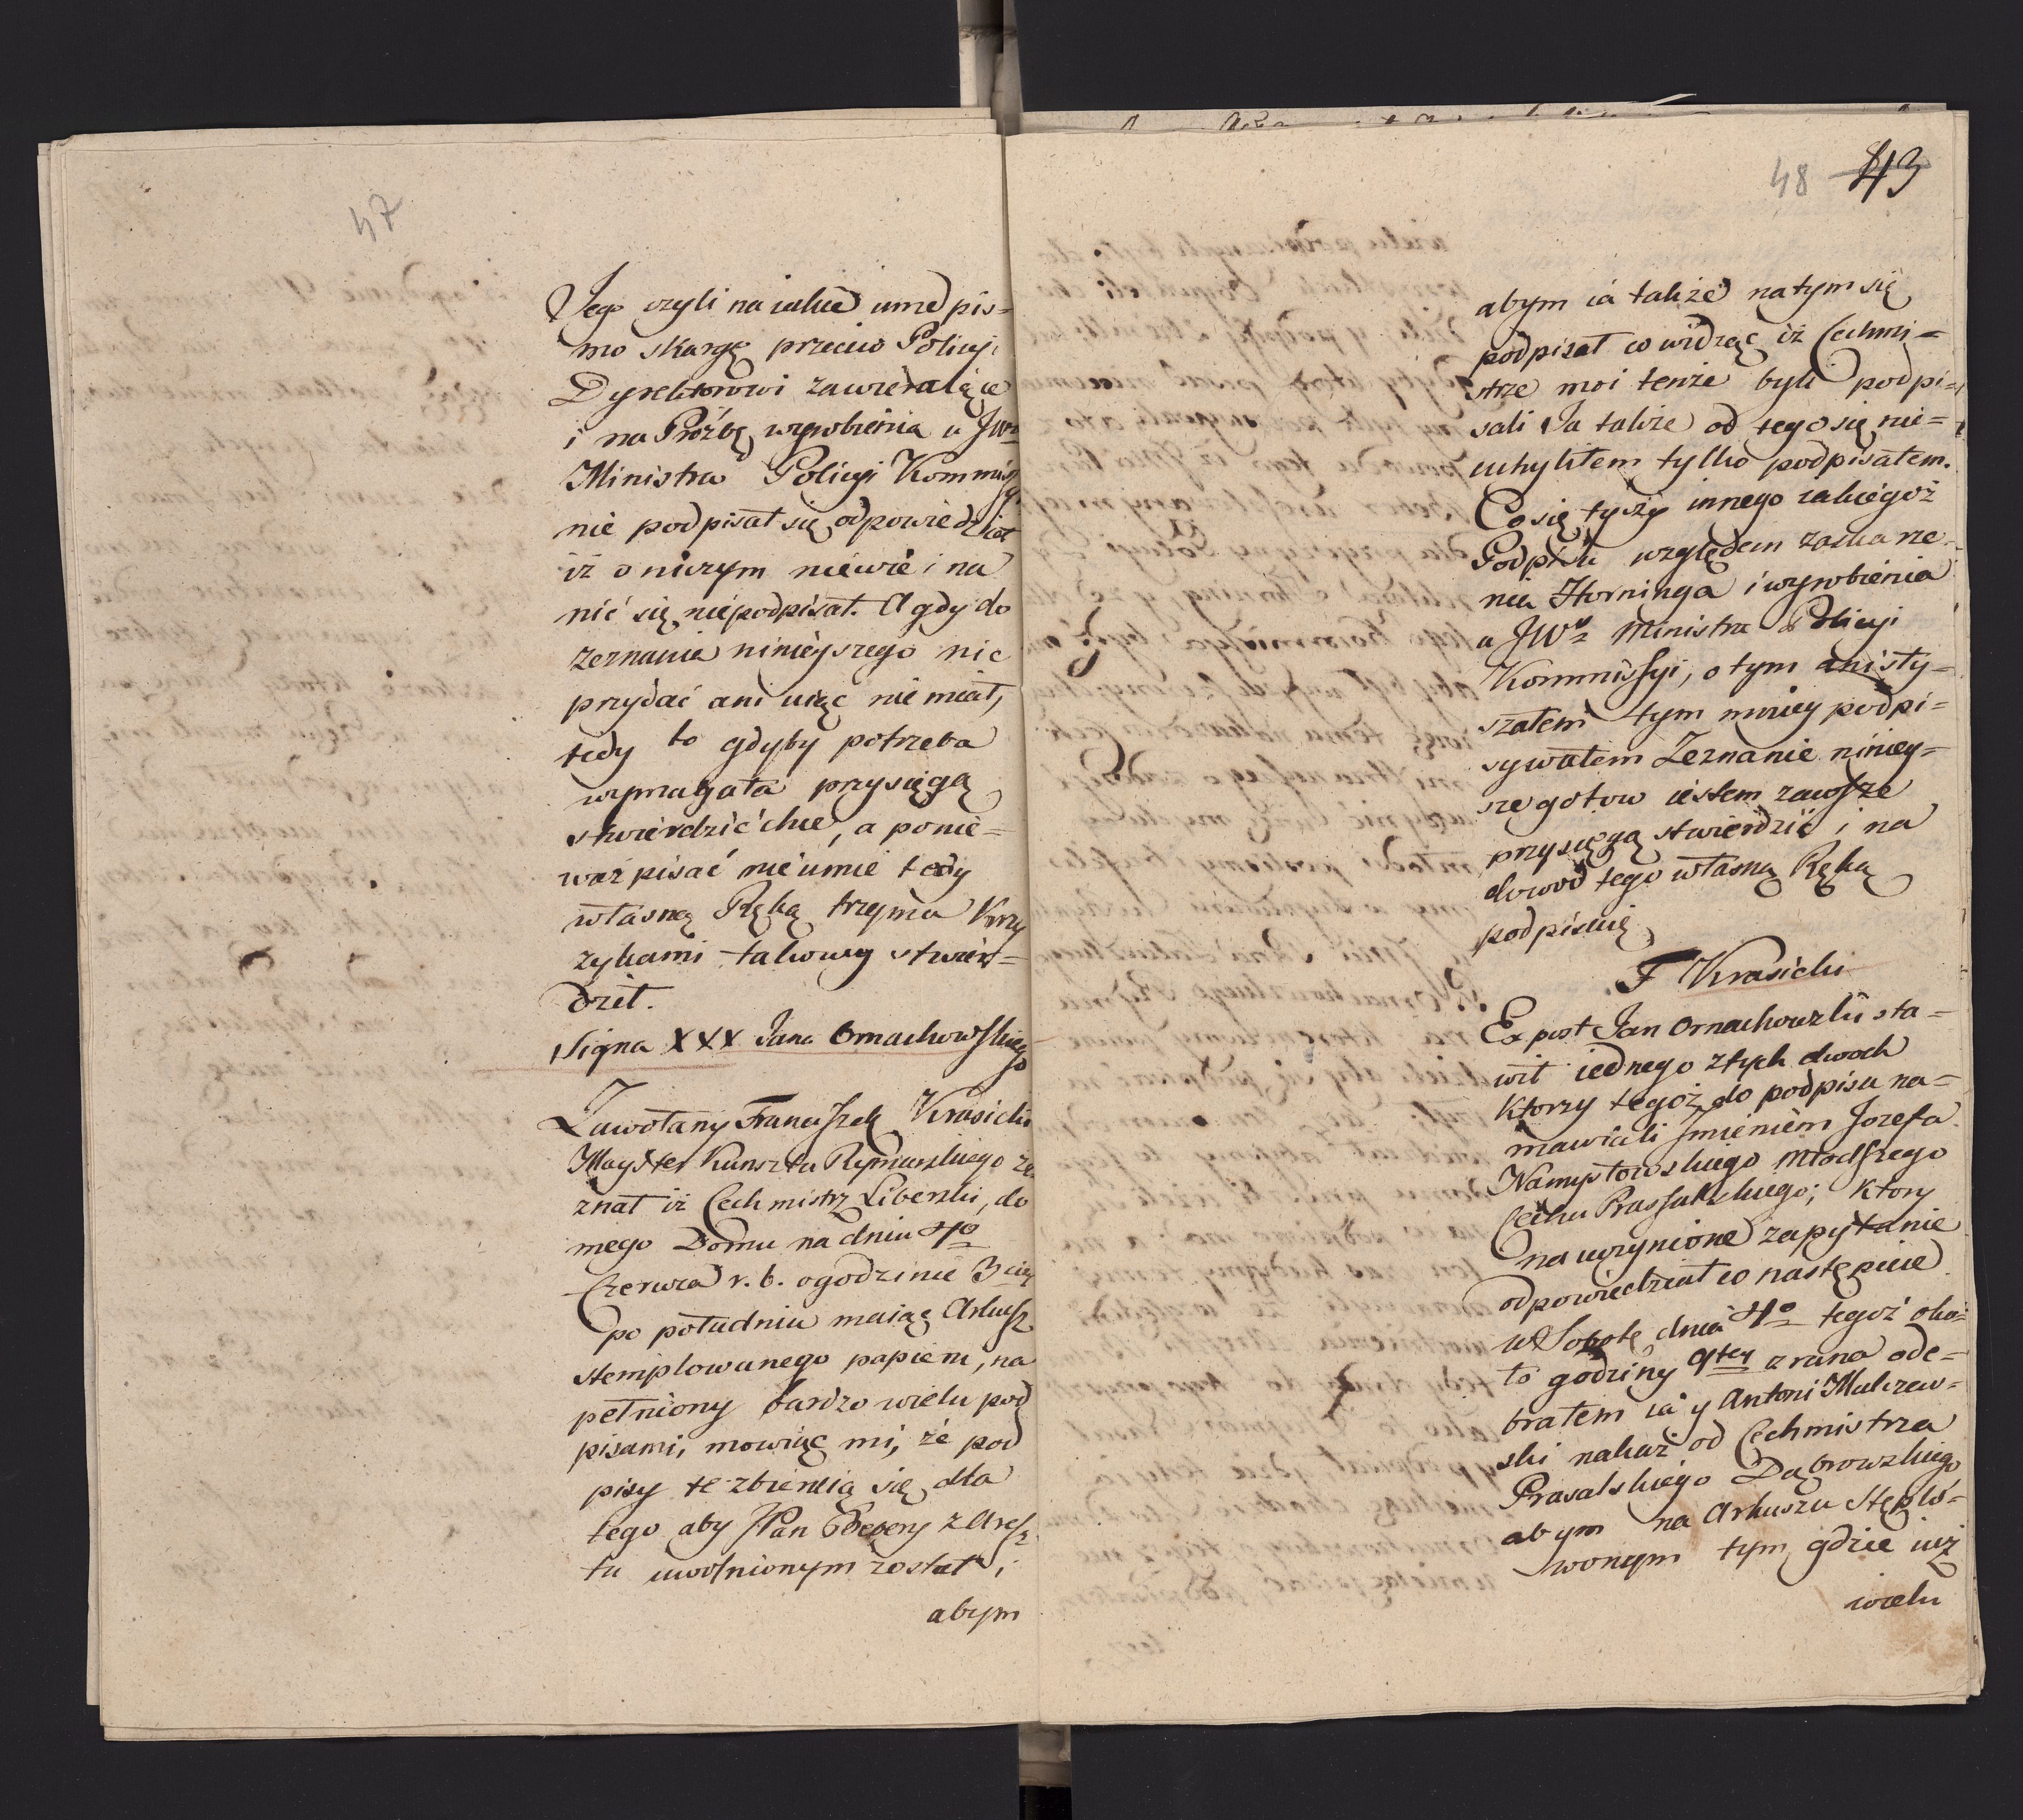 47
Jego czyli na iakie inne pis-
mo skargę przeciw Policyi
Dyrektorowi zawieraiące
i na Prózbę wyrobienia u JWo
Ministra Policyi Kommissyi
nie podpisał się, odpowiedział
iż o niczym niewie i na
nić się niepodpisał. A gdy do
zeznania ninieyszego nic
przydać ani uiąc nie miał,
tedy to gdyby potrzeba
wymagała przysięgą
stwierdzić chce, a ponie=
waż pisać nieumie tedy
własną Ręką trzema Krzy
zykami takowy stwier=
dził.
Signa XXX Jana Ornachowskiego
Zawołany Franciszek Krasicki
Mayster Kunsztu Rymarskiego ze
znał iż Cechmistrz Libenski, do
mego Domu na dniu 4o
Czerwca r. b. ogodzinie 3ciey
po południu maiąc Arkusz
stemplowanego papieru, na
pełniony bardzo wielu pod
pisami, mowiąc mi, że pod
pisy te zbieraią się dla
tego aby JPan z Aresz
tu uwolnionym został,
abym
48 43
abym ia także natym się
podpisał co widząc iż Cechmi=
strze moi tenże byli podpi=
sali Ja także od tego się nie=
uchyliłem tylko podpisałem.
Co się tyczy innego iakiegoż
Podpisu względem zaskarze=
nia Horninga i wyrobienia
u JWo Ministra Policyi
Kommissyi, o tym ani sły=
szałem tym mniey podpi=
sywałem Zeznanie niniey=
sze gotow iestem zawsze
przysięgą stwierdzić i na
dowod tego własną Ręką
podpisuię
F Krasicki
Ex post Jan Ornachowzki sta=
wił iednego ztych dwoch
Ktorzy tegoż do podpisu na=
mawiali Jmieniem Jozefa
Namysłowskiego Młodszego
Cechu Prassalskiego; Ktory
na uczynione zapytanie
odpowiedział co następuie
w Sobotę dnia 4o tegoż oko=
ło godziny 9tey z rana ode=
brałem ia y Antoni Malczew=
ski nakaz od Cechmistrza
Prasalskiego Dąbrowzkiego
abym na Arkuszu stęplo=
wonym tym gdzie iuż
wielu